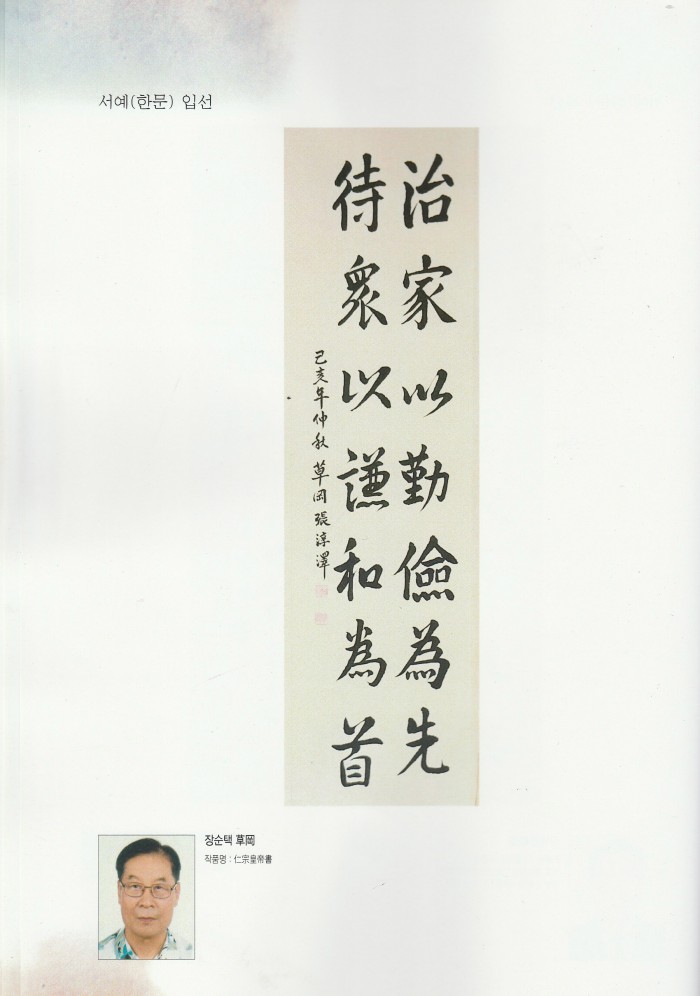 서예(한문) 입선
治家以勤儉為先
待衆以謙和為首
己亥年仲秋 草岡 張淳澤
장순택 草岡
작품명 : 仁宗皇帝書